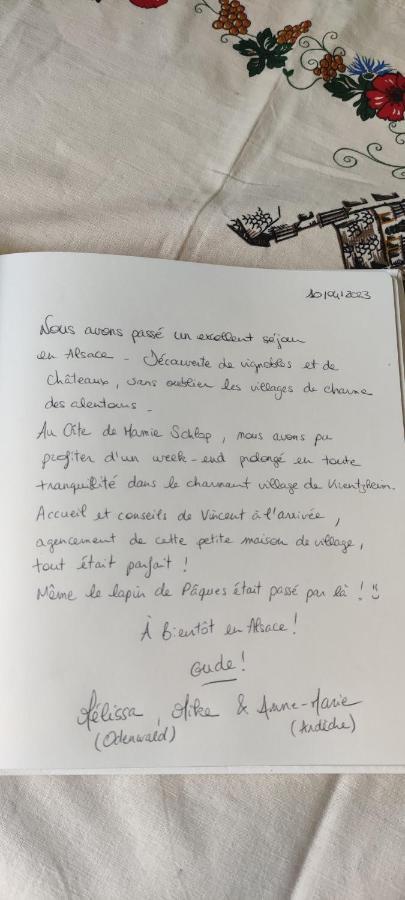 10/04/2023
Nous avons passé un excellent séjour
en Alsace - Découverte de vignobles et de
châteaux, sans oublier les villages de charme
des alentours -
Au Gîte de Mamie Schlop, nous avons pu
profiter d'un week-end prolongé en toute
tranquillité dans le charmant village de Kientzheim.
Accueil et conseils de Vincent à l'arrivée,
agencement de cette petite maison de village,
tout était parfait !
Même le lapin de Pâques était passé par là ! :)
À bientôt en Alsace !
Gude !
Mélissa, Mike & Anne-Marie
(Odenwald) (Ardèche)